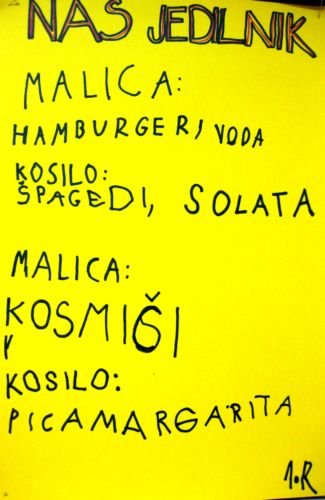 NAŠ JEDILNIK
MALICA:
HAMBURGER, VODA
KOSILO:
ŠPAGEDI, SOLATA
MALICA:
KOSMIČI
KOSILO:
PICAMARGARITA
1.R